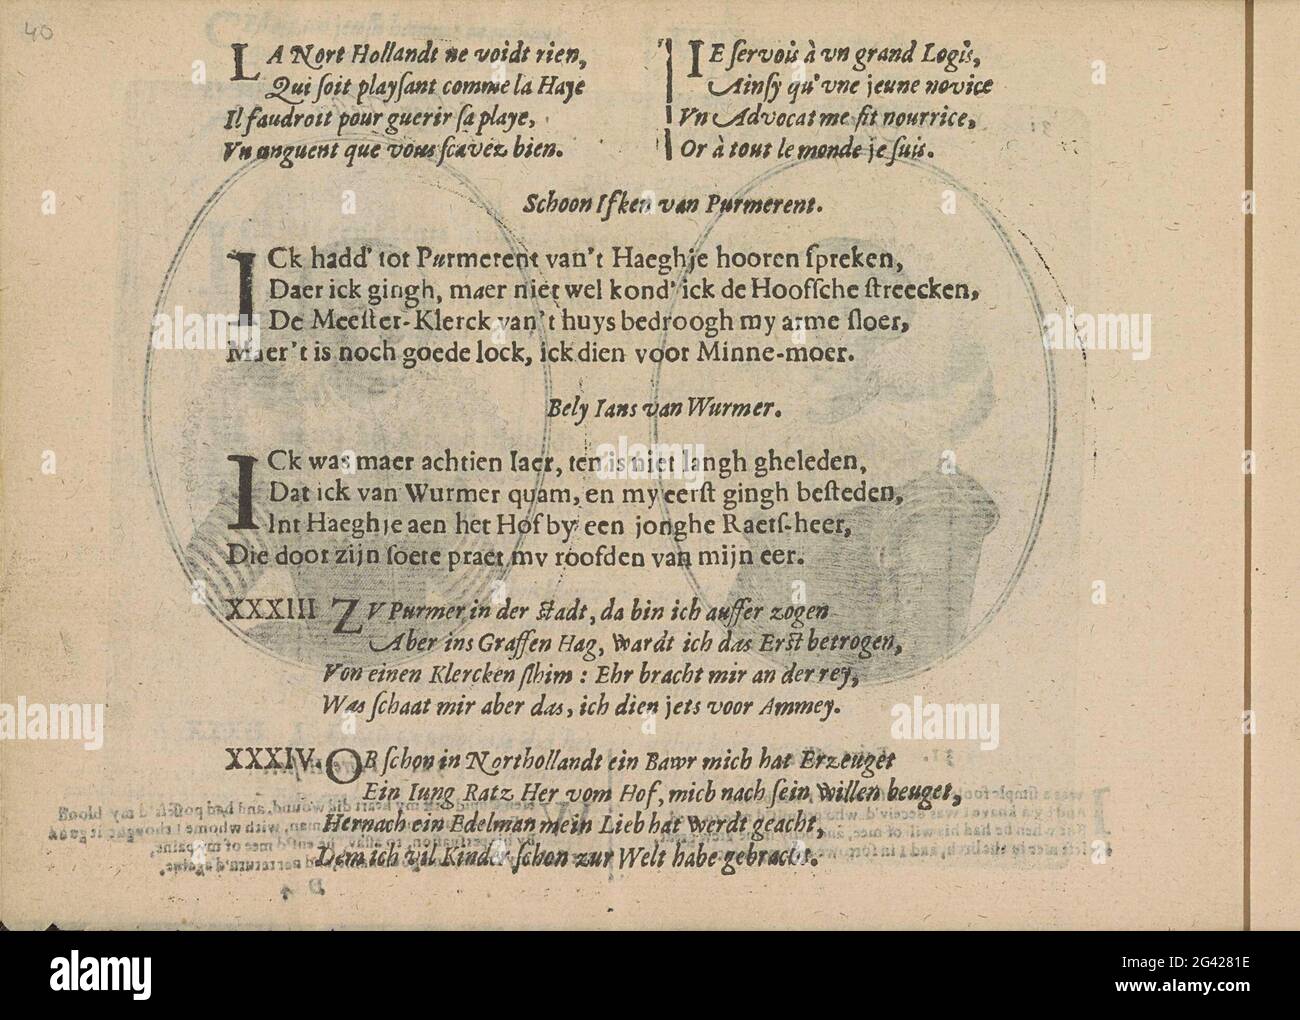 40
LA Nort Hollandt ne voidt rien,
Qui soit playsant comme la Haye
Il faudroit pour guerir sa playe,
Vn onguent que vous scavez bien.
IE servois à vn grand Logis,
Ainsy qu'vne jeune novice
Vn Advocat me fit nourrice,
Or à tout le monde je suis.
Schoon Ifken van Purmerent.
ICk hadd' tot Purmerent van't Haeghje hooren spreken,
Daer ick gingh, maer niet wel kond' ick de Hoofsche streecken,
De Meester-Klerck van't huys bedroogh my arme sloer,
Maer't is noch goede lock, ick dien voor Minne-moer.
Bely Ians van Wurmer.
ICk was maer achtien Iaer, ten is niet langh gheleden,
Dat ick van Wurmer quam, en my eerst gingh besteden,
Int Haeghje aen het Hof by een jonghe Raets-heer,
Die door zijn soete praet my roofden van mijn eer.
XXXIII ZV Purmer in der stadt, da bin ich auffer zogen
Aber ins Graffen Hag, wardt ich das Erst betrogen,
Von einen Klercken slhim : Ehr bracht mir an der rey,
Was schaat mir aber das, ich dien jets voor Ammey.
XXXIV. OB schon in Northollandt ein Bawr mich hat Erzeuget
Ein Iung Ratz Her vom Hof, mich nach sein willen beuget,
Hernach ein Edelman mein Lieb hat werdt geacht,
Dem ich vil Kinder schon zur Welt habe gebracht.
alamy
Image ID: 2G4281E
www.alamy.com